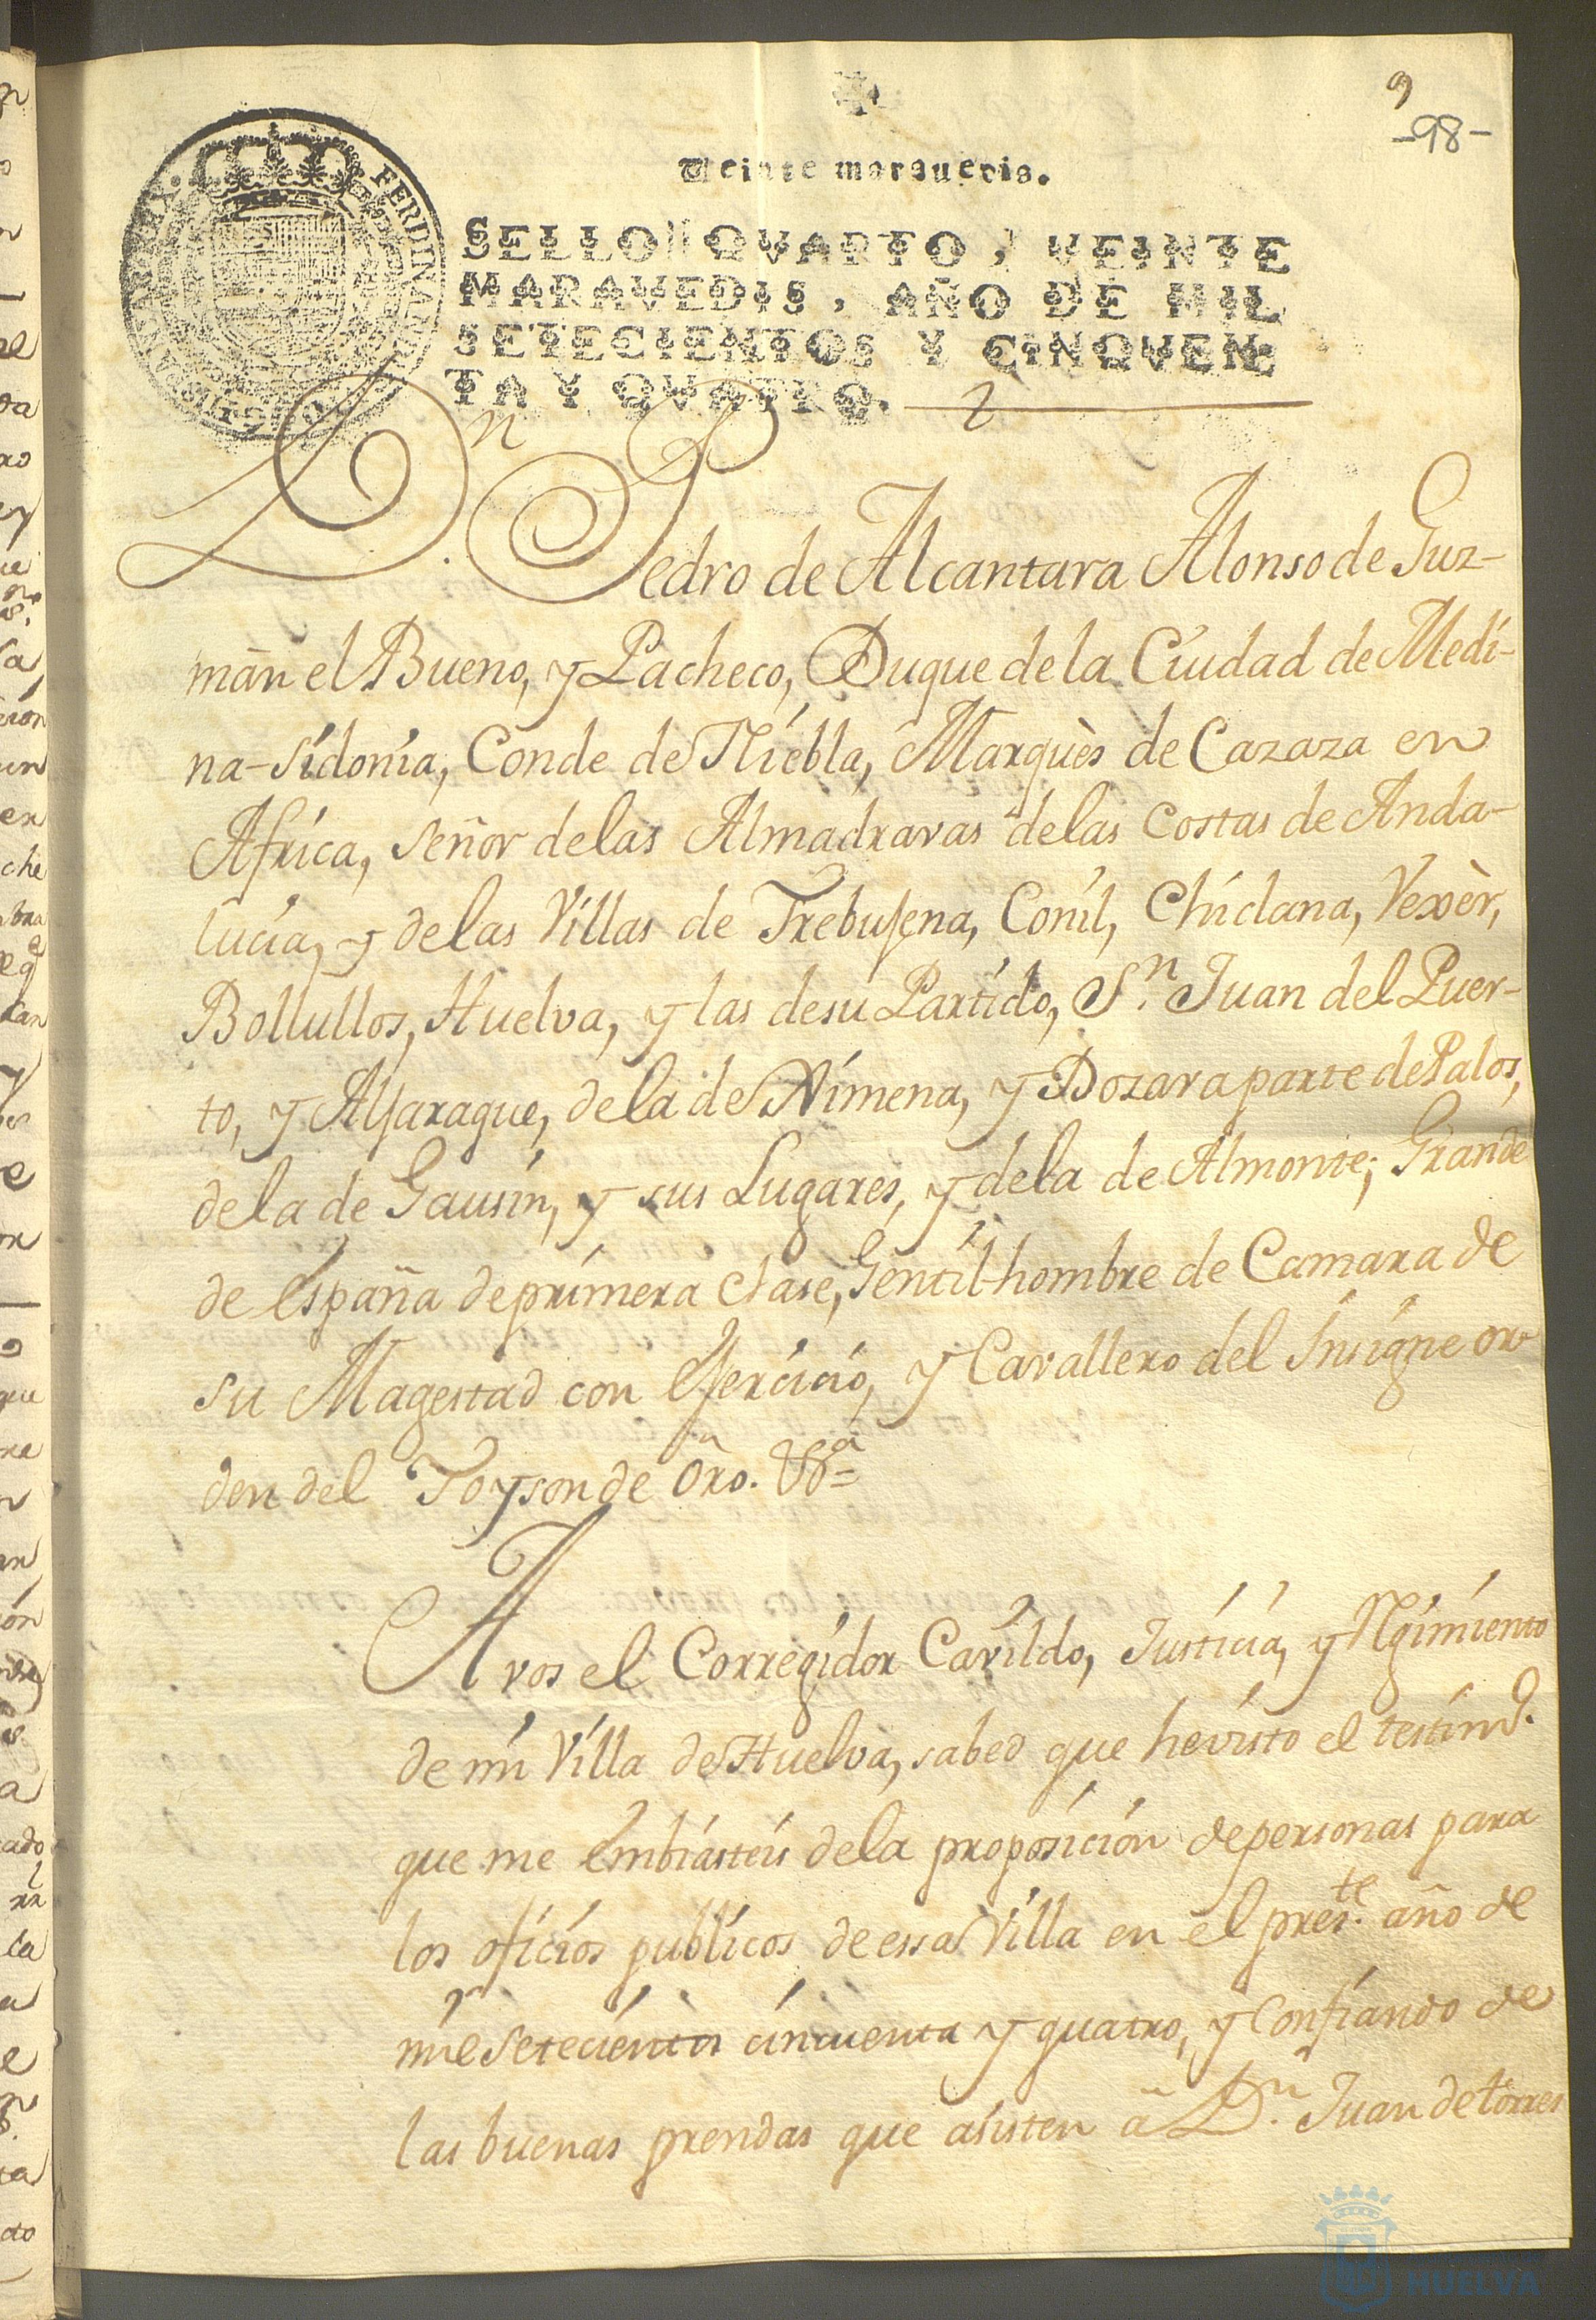 9
-98-
Veinte maravedis.
SELLO QVARTO, VEINTE
MARAVEDIS, AÑO DE MIL
SETECIENTOS Y CINQVEN
TA Y QVATRO.
FERDINAND
D.n Pedro de Alcantara Alonso de Guz-
mãn el Bueno, y Pacheco, Duque de la Ciudad de Medi-
na-Sidonia, Conde de Niebla, Marquès de Cazaza en
Africa, Señor delas Almadravas delas Costas de Anda-
lucia, y delas Villas de Trebujena, Conil, Chiclana, Vexèr,
Bollullos, Huelva, y las desu Partido, S.n Juan del Puer-
to, y Aljaraque, dela de Ximena, y Dozava parte de Palos,
dela de Gausin, y sus Lugares, y dela de Almonte; Grande
de España de primera clase, Gentil-hombre de Camara de
su Magestad con Ejercicio, y Cavallero del Insigne or
den del Toyson de Oro. &a
A vos el Corregidor Cavildo, Justicia, y Rgimiento
de mi Villa de Huelva, sabed que hevisto el testim.o
que me embiasteis dela proposicion depersonas para
los oficios publicos de essa Villa en el pres.te año de
mil Setecientos cincuenta y quatro, y confiando de
las buenas prendas que asisten â D.n Juan detorres
HUELVA